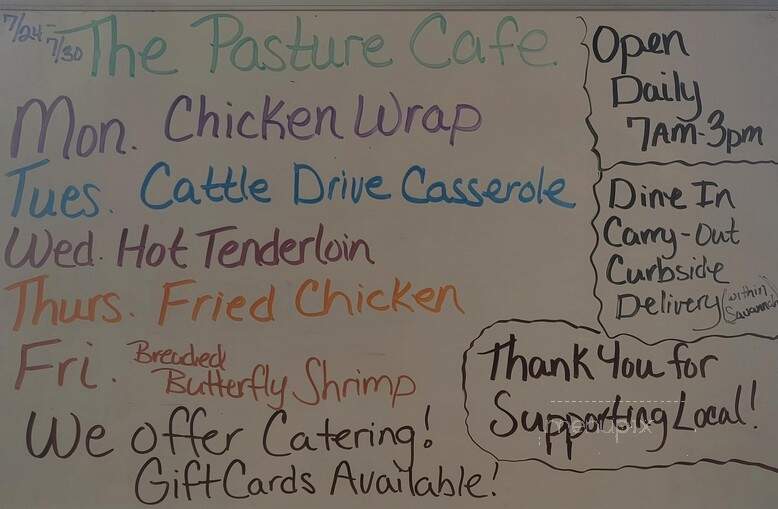 7/24-
7/30
The Pasture Cafe
Mon. Chicken Wrap
Tues. Cattle Drive Casserole
Wed. Hot Tenderloin
Thurs. Fried Chicken
Fri. Breaded
Butterfly Shrimp
We Offer Catering!
Gift Cards Available!
Open
Daily
7AM-3pm
Dine In
Carry-Out
Curbside
Delivery (within
Savannah)
Thank You for
Supporting Local!
menupix